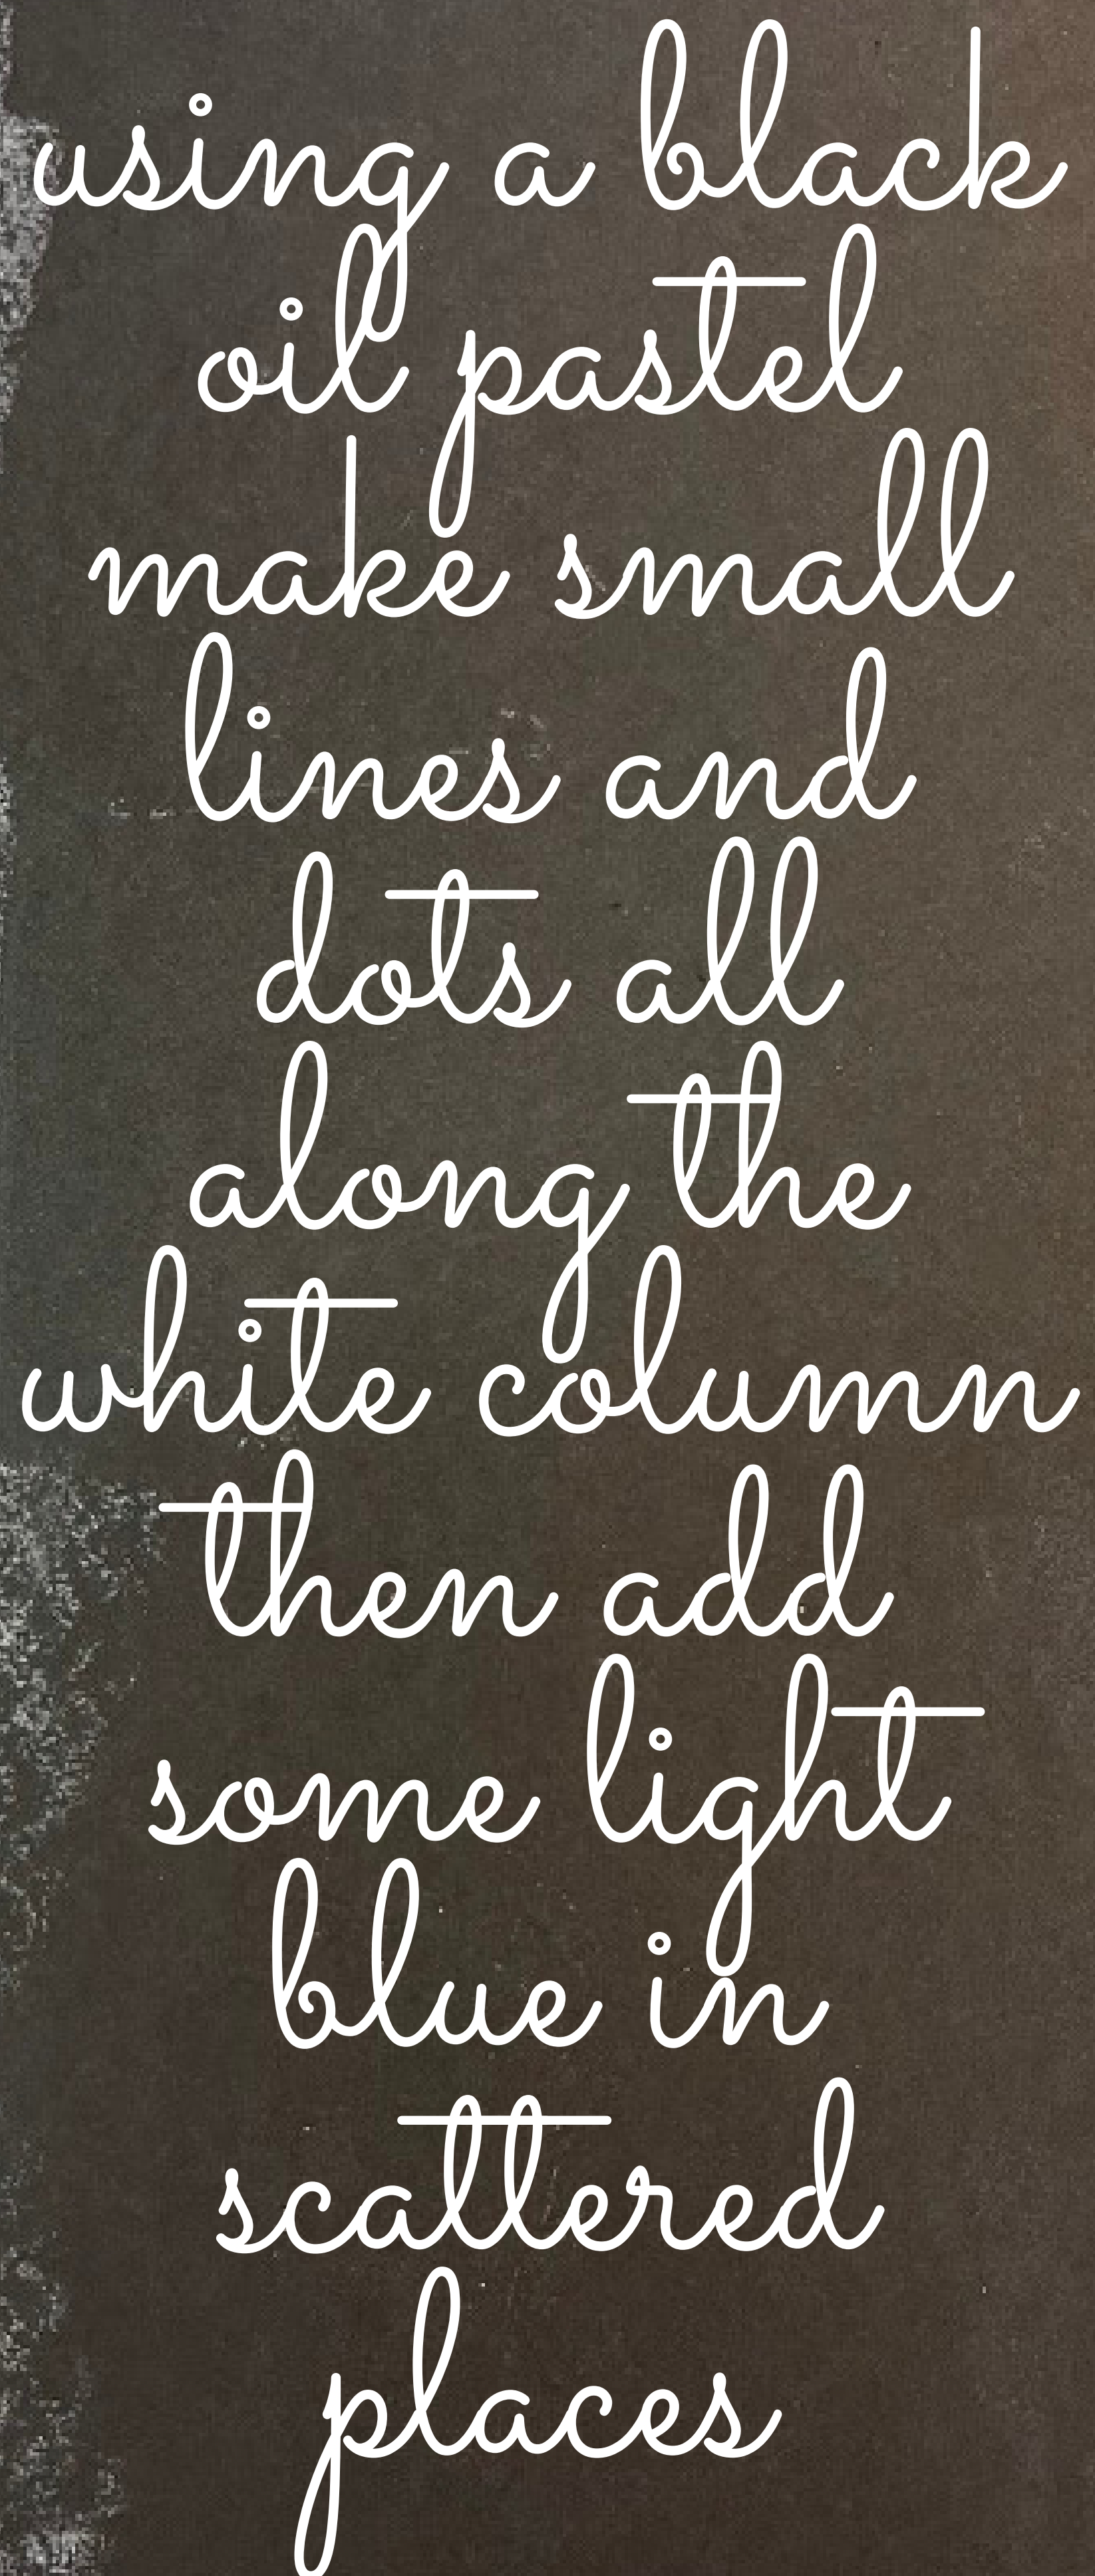 using a black
oil pastel
make small
lines and
dots all
along the
white column
then add
some light
blue in
scattered
places